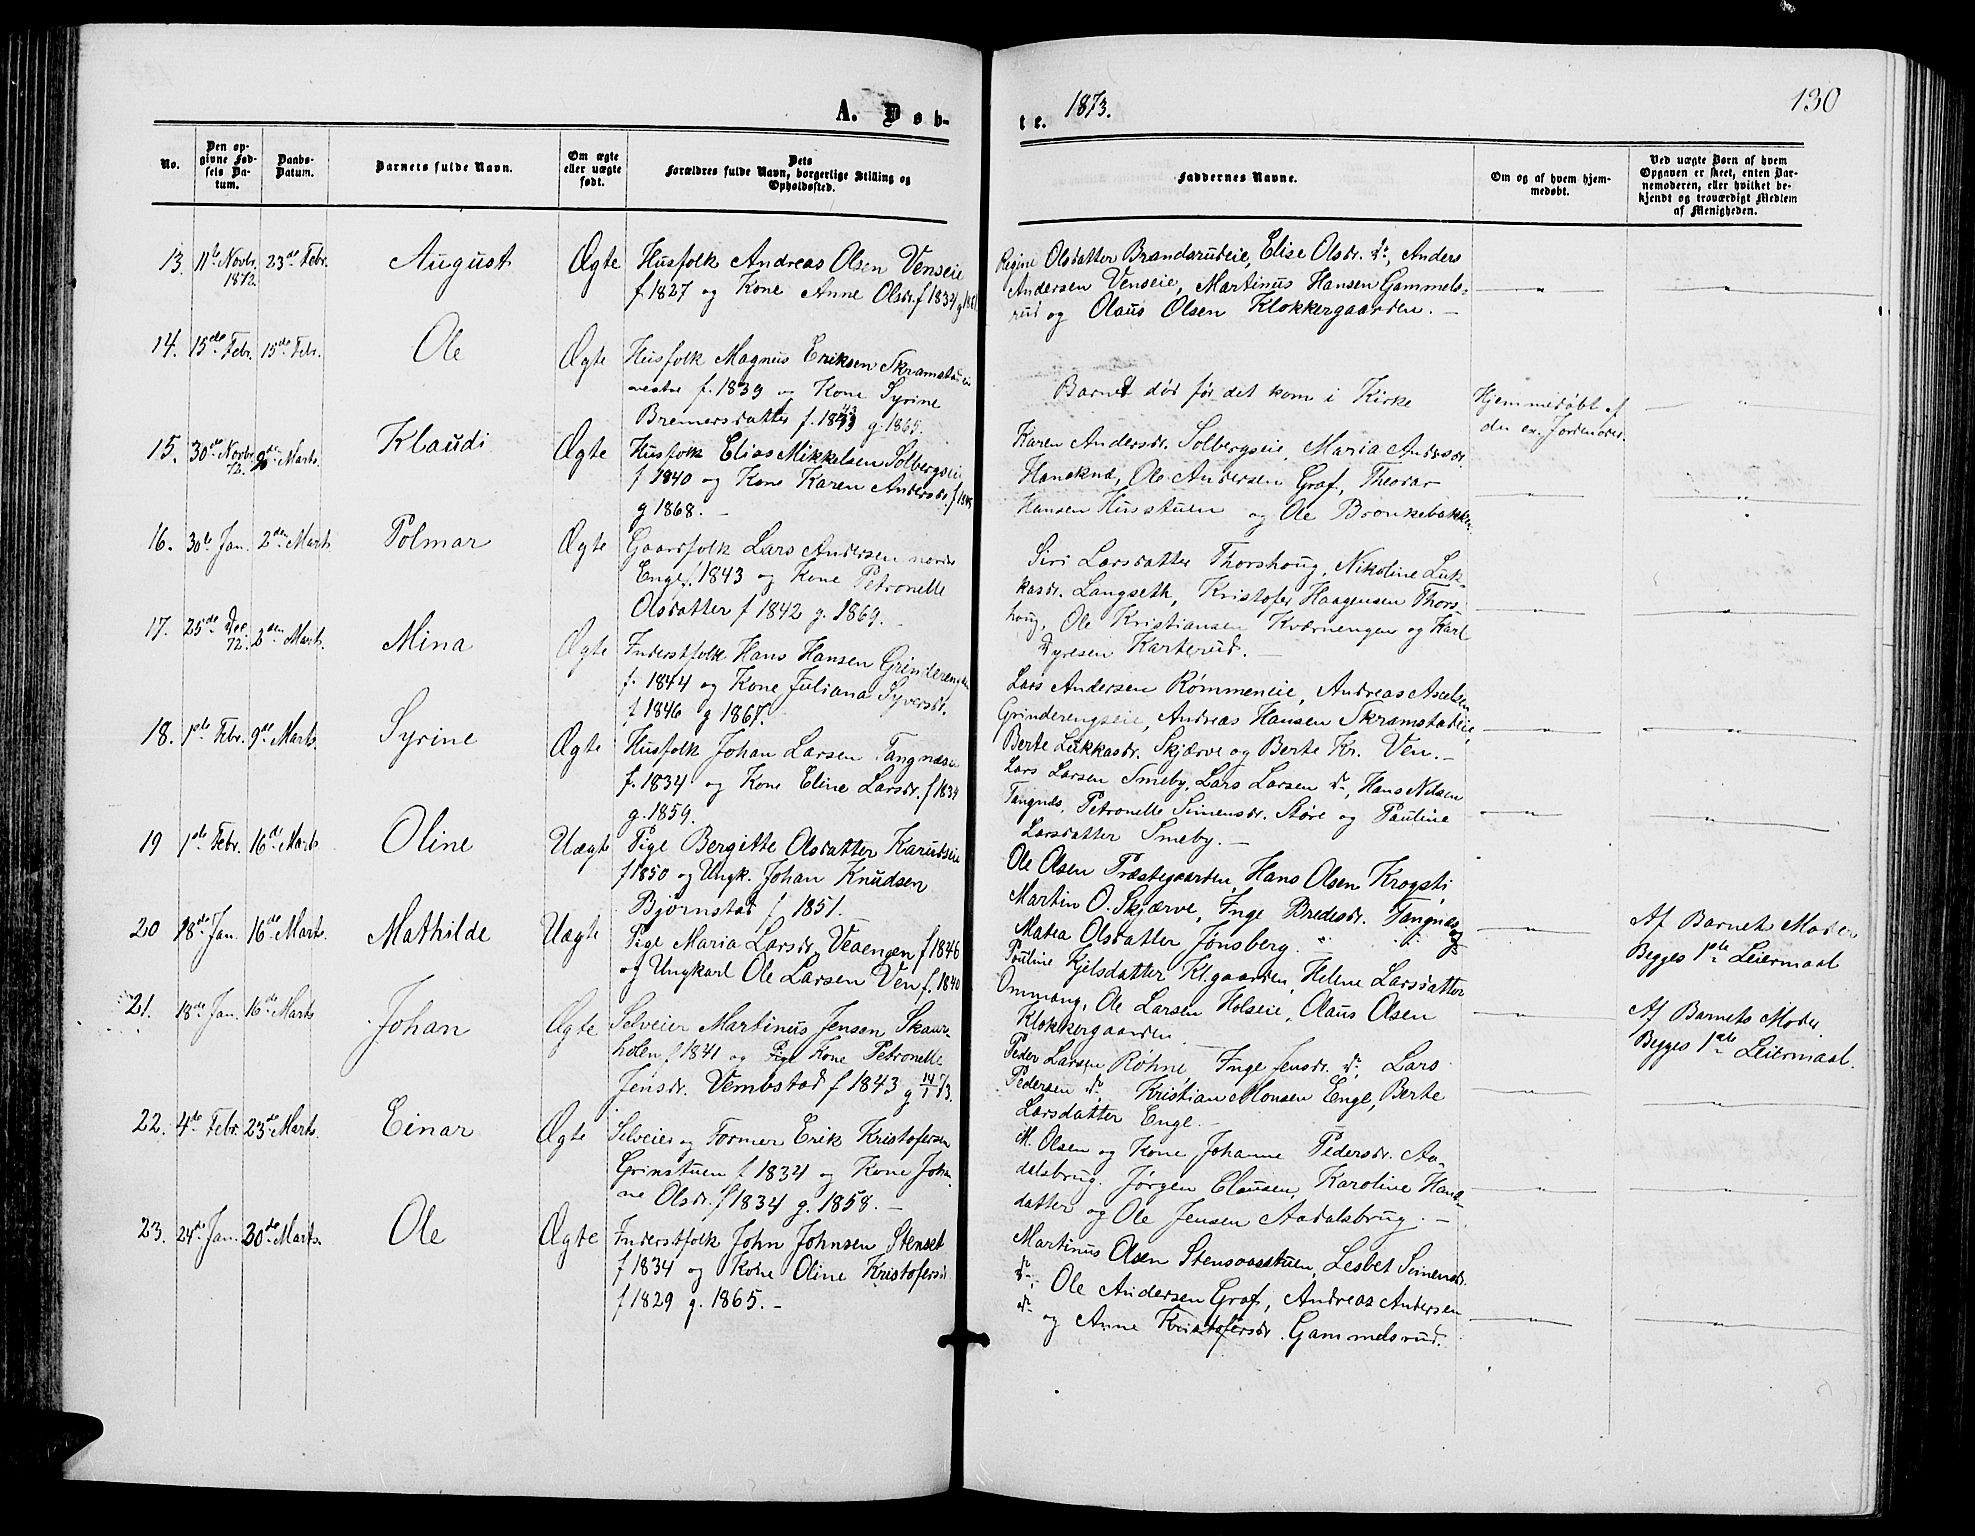 130
A. Døb-
te. 1873.
No.
Den op-
givne Fød-
sels Da-
tum.
Daabs-
Datum.
Barnets fulde Navn.
Om ægte
eller uægte
født.
Dets
Forældres fulde Navn, borgerlige Stilling og
Opholdssted.
Faddernes Navne.
Om og af hvem hjem-
medøbt.
Ved uægte Børn af hvem
Opgaven er skeet, enten Bar-
nemoderen, eller hvilket be-
kjendt og troværdigt Medlem
af Menigheden.
13. 11te Novbr. 1872. 23de Febr. August Ægte
Husfolk Andreas Olsen Venseie
f. 1827 og Kone Anne Olsdr. f 1834
Regine Olsdatter Brandsrudeie, Elise Olsdr. do, Anders
Andersen Venseie, Martinus Hansen Gammels-
rud og Olaus Olsen Klokkergaarden. —
14. 15de Febr. 15de Febr. Ole Ægte
Husfolk Magnus Eriksen Skramstadeie
vestre f. 1839 og Kone Syrine
Bremersdatter f. 1843 g. 1865.
Barnet død før det kom i Kirke
Hjemmedøbt af
den ex. Jordmoder.
15. 30de Novbr. 72. 2den Marts. Klaudi Ægte
Husfolk Elias Mikkelsen Solbergseie
f 1840 og Kone Karen Andersdr. f 1845
g 1868. —
Karen Andersdr. Solbergseie, Maria Andersdr.
Haneknæ, Ole Andersen Graf, Theodor
Hansen Husstuen og Ole Bronkebakken
16. 30te Jan. 2den Marts Polmar Ægte
Gaardfolk Lars Andersen nordre
Enge f. 1843 og Kone Petronelle
Olsdatter f 1842 g. 1869. —
Siri Larsdatter Thorshoug, Nikoline Luk-
kasdr. Langseth, Kristofer Haagensen Thors-
houg, Ole Kristiansen Kværnengen og Karl
Dyresen Karterud. —
17. 25de Dec 72. 2den Marts. Mina Ægte
Inderstfolk Hans Hansen Grinderengen
f. 1844 og Kone Juliana Syversdr.
f 1846 g 1867.
Lars Andersen Rømmeneie, Andreas Axelsen
Grinderengseie, Andreas Hansen Skramstadeie,
Berte Lukkasdr. Skjærve og Berte Kr. Ven. —
18. 1ste Febr. 9de Marts. Syrine Ægte
Husfolk Johan Larsen Tangnæs
f. 1834 og Kone Eline Larsdr. f 1834
g. 1859.
Lars Larsen Smeby, Lars Larsen do, Hans Nilsen
Tangnæs, Petronelle Simensdr. Støre og Pauline
Larsdatter Smeby. —
19 1ste Febr. 16de Marts Oline Uægte
Pige Bergitte Olsdatter Karudseie
f 1850 og Ungk. Johan Knudsen
Bjørnstad f 1851.
Ole Olsen Præstegaarden, Hans Olsen Krogsti,
Martin O. Skjærve, Inge Bredesdr. Tangnæs og
Matea Olsdatter Jønsberg.
Af Barnets Moder
Begges 1ste Leiermaal
20 18de Jan. 16de Marts. Mathilde Uægte
Pige Maria Larsdr. Veaengen f 1846
og Ungkarl Ole Larsen Ven f. 1840
Pauline Kjelsdatter Kl.gaarden, Helene Larsdatter
Ommang, Ole Larsen Holseie, Olaus Olsen
Klokkergaarden. —
Af Barnets Moder.
Begges 1ste Leiermaal.
21. 18de Jan. 16de Marts Johan Ægte
Selveier Martinus Jensen Skaur-
holen f 1841 og Pige Kone Petronelle
Jensdr. Vembstad f 1843 g 14/1 73.
Peder Larsen Røhne, Inge Jensdr. do, Lars
Pedersen do. Kristian Monsen Enge, Berte
Larsdatter Enge. —
22. 4de Febr. 23de Marts. Einar Ægte
Selveier og Former Erik Kristofersen
Grinstuen f 1834 og Kone Johan-
ne Olsdr. f 1834 g. 1858. —
M. Olsen og Kone Johanne Pedersdr. Aa-
dalsbrug. Jørgen Clausen, Karoline Hans-
datter og Ole Jensen Aadalsbrug. —
23. 24de Jan. 30de Marts. Ole Ægte
Inderstfolk John Johnsen Stenset
f 1834 og Kone Oline Kristofersd
f 1829 g. 1865. —
Martinus Olsen Stensaasstuen, Lesbet Simensdr.
do, Ole Andersen Graf, Andreas Andersen
do og Anne Kristofersdr. Gammelsrud.